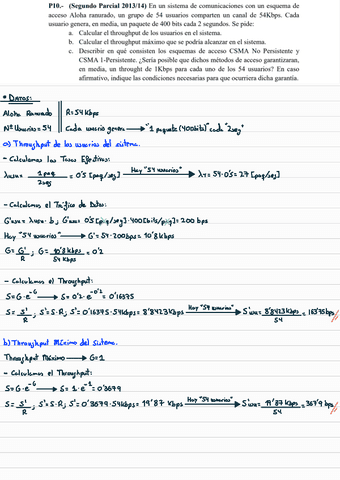 P10.- (Segundo Parcial 2013/14) En un sistema de comunicaciones con un esquema de
acceso Aloha ranurado, un grupo de 54 usuarios comparten un canal de 54Kbps. Cada
usuario genera, en media, un paquete de 400 bits cada 2 segundos. Se pide:
a. Calcular el throughput de los usuarios en el sistema.
b. Calcular el throughput máximo que se podría alcanzar en el sistema.
c. Describir en qué consisten los esquemas de acceso CSMA No Persistente y
CSMA 1-Persistente. ¿Sería posible que dichos métodos de acceso garantizaran,
en media, un throught de 1Kbps para cada uno de los 54 usuarios? En caso
afirmativo, indique las condiciones necesarias para que ocurriera dicha garantía.
* DATOS:
Aloha Ranurado R=54 Kbps
Nº Usuarios = 54 Cada usuario genera → "1 paquete (400bits)" cada "2seg"
a) Throughput de los usuarios del sistema.
- Calculamos las Tasas Efectivas:
λusu = 1 paq / 2seg = 0'5 [paq/seg] Hay "54 usuarios" → λT = 54·0'5 = 27 [paq/seg]
- Calculamos el Tráfico de Datos:
G'usu = λusu · b; G'usu = 0'5 [paq/seg] · 400 [bits/paq] = 200 bps
Hay "54 usuarios" → G' = 54·200bps = 10'8 kbps
G = G'/R ; G = 10'8 kbps / 54 Kbps = 0'2
- Calculamos el Throughput:
S = G·e^-G → S = 0'2·e^-0'2 = 0'16375
S = S'/R ; S' = S·R; S' = 0'16375·54kbps = 8'8423 Kbps Hay "54 usuarios" → S'usu = 8'8423 kbps / 54 = 163'75 bps
b) Throughput Máximo del Sistema.
Throughput Máximo → G=1
- Calculamos el Throughput:
S = G·e^-G → S = 1·e^-1 = 0'3679
S = S'/R ; S' = S·R; S' = 0'3679·54kbps = 19'87 Kbps Hay "54 usuarios" → S'usu = 19'87 Kbps / 54 = 367'9 bps